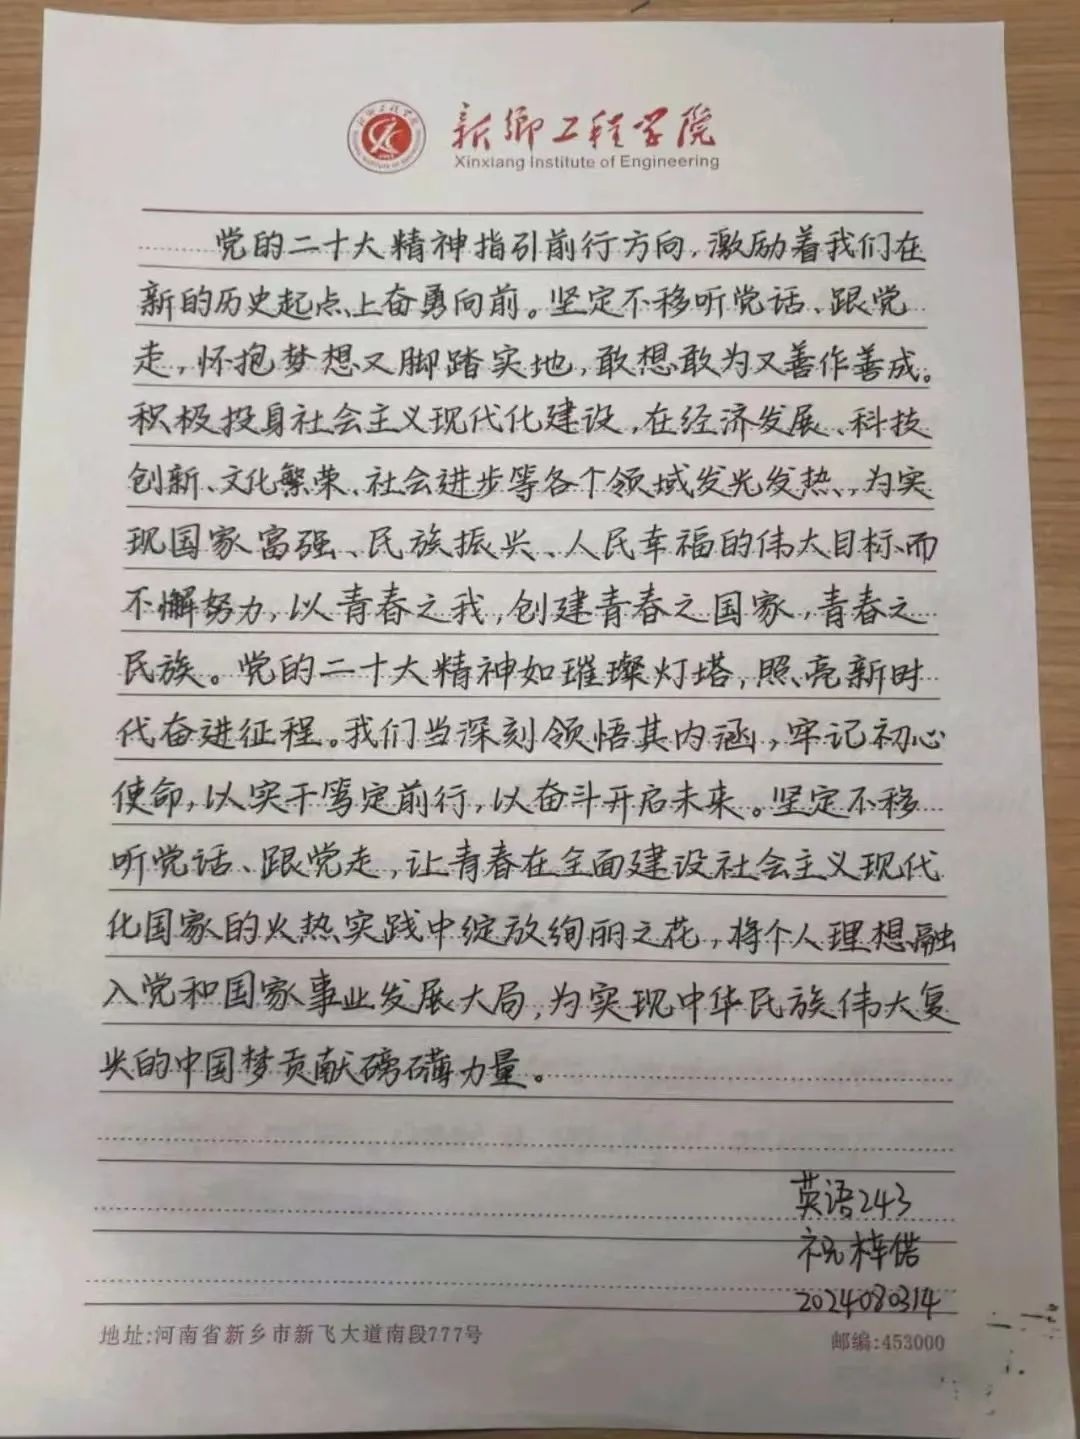 新乡工程学院
Xinxiang Institute of Engineering
党的二十大精神指引前行方向,激励着我们在
新的历史起点上奋勇向前。坚定不移听党话、跟党
走,怀抱梦想又脚踏实地,敢想敢为又善作善成。
积极投身社会主义现代化建设,在经济发展、科技
创新、文化繁荣、社会进步等各个领域发光发热、为实
现国家富强、民族振兴、人民幸福的伟大目标而
不懈努力,以青春之我,创建青春之国家,青春之
民族。党的二十大精神如璀璨灯塔,照亮新时
代奋进征程。我们当深刻领悟其内涵,牢记初心
使命,以实干笃定前行,以奋斗开启未来。坚定不移
听党话、跟党走,让青春在全面建设社会主义现代
化国家的火热实践中绽放绚丽之花,将个人理想融
入党和国家事业发展大局,为实现中华民族伟大复
兴的中国梦贡献磅礴力量。
英语243
祝梓偌
2024080314
地址:河南省新乡市新飞大道南段777号
邮编:453000